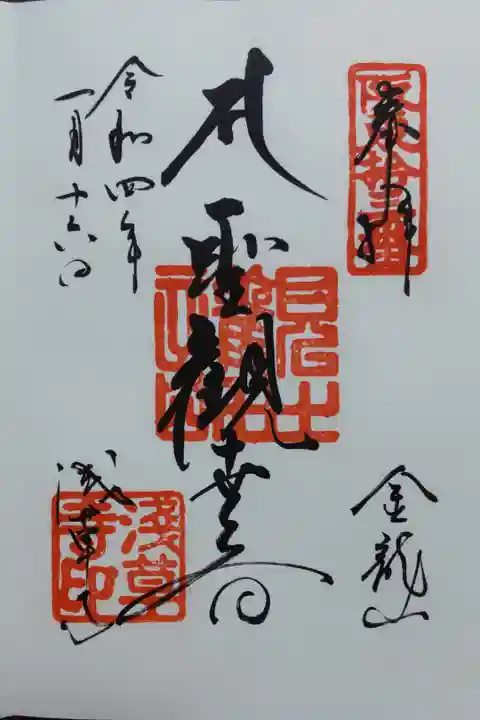 奉拝
金龍山
聖観世音
浅草寺
令和四年
一月十六日
淺草
寺印